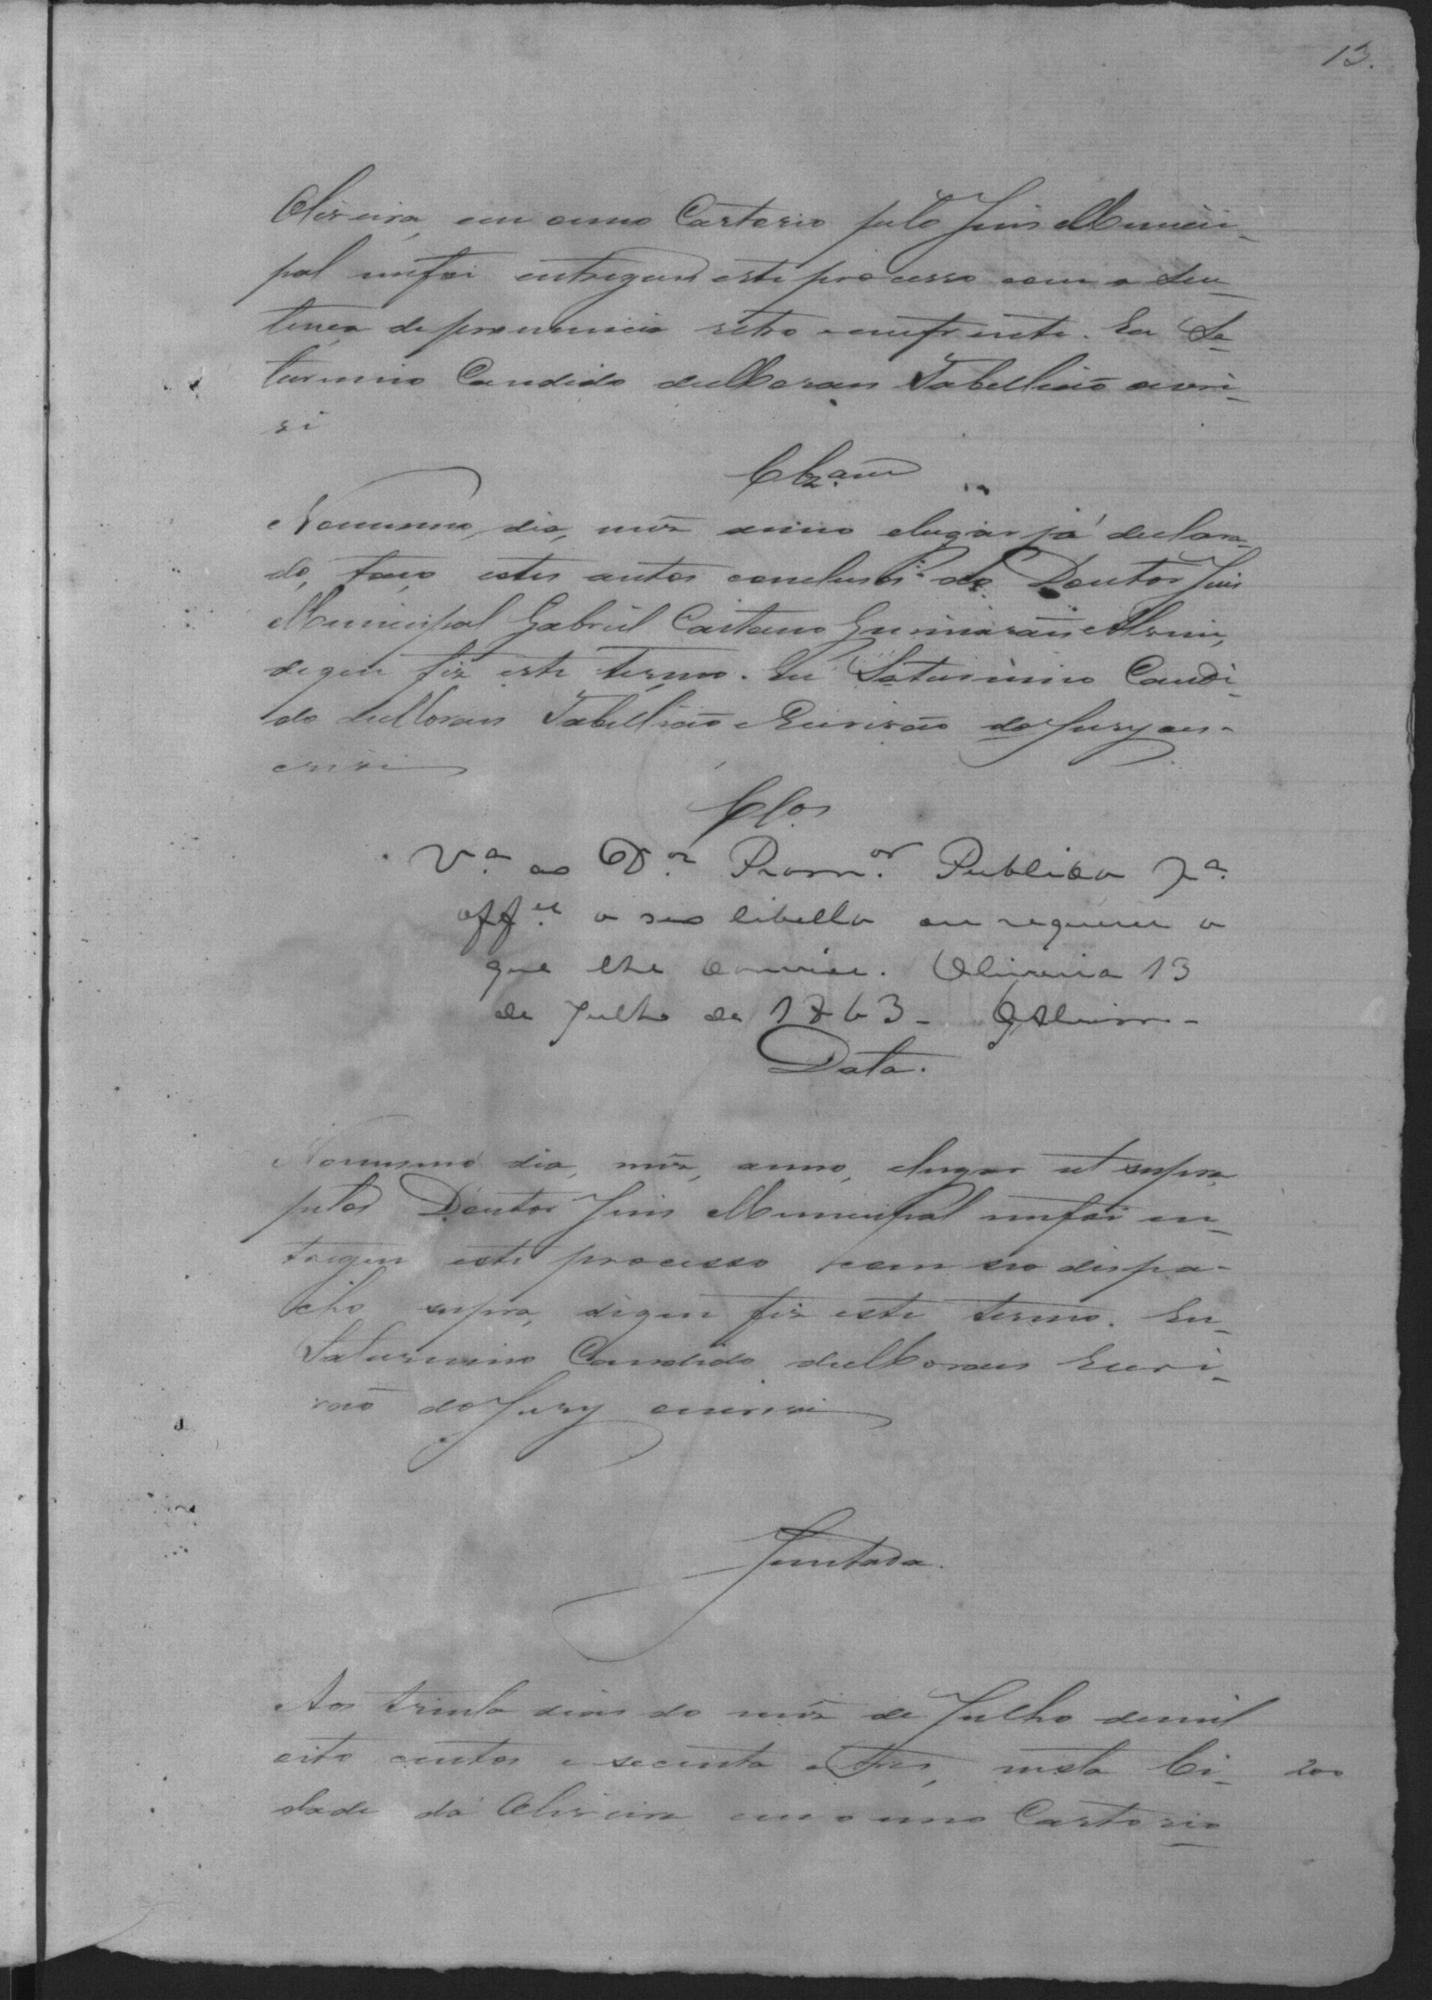 13.
Oliveira, em omeo Cartorio pelo Juis Munici-
pal mefoi entregue este processo com a Sen-
tença depronuncia retro emfrente. Eu Sa-
turnino Candido deMoraes Tabellião escre-
vi
Clzam
Nomesmo dia, mez anno elugar já declara-
do, faço estes autos conclusos ao Doutor Juis
Municipal Gabriel Caitano Guimarães Alvim,
deque fiz este termo. Eu Saturnino Candi-
do deMoraes Tabellião eEscrivão do Jury es-
crevi
Clos
V.ª ao D.or Prom.or Publico p.ª
off.er o seo libello ou requerer o
que lhe convier. Oliveira 13
de Julho de 1863 - GAlvim -
Data.
Nomesmo dia, mez, anno, elugar ut supra,
pelo Doutor Juis Municipal mefoi en-
tregue este processo com seo despa-
cho supra, deque fiz este termo. Eu
Saturnino Candido deMoraes Escri-
vão do Jury escrevi
Juntada.
Aos trinta dias do mez de Julho demil
oito centos e secenta e tres, nesta Ci- 200
dade da Oliveira em omeo Cartorio